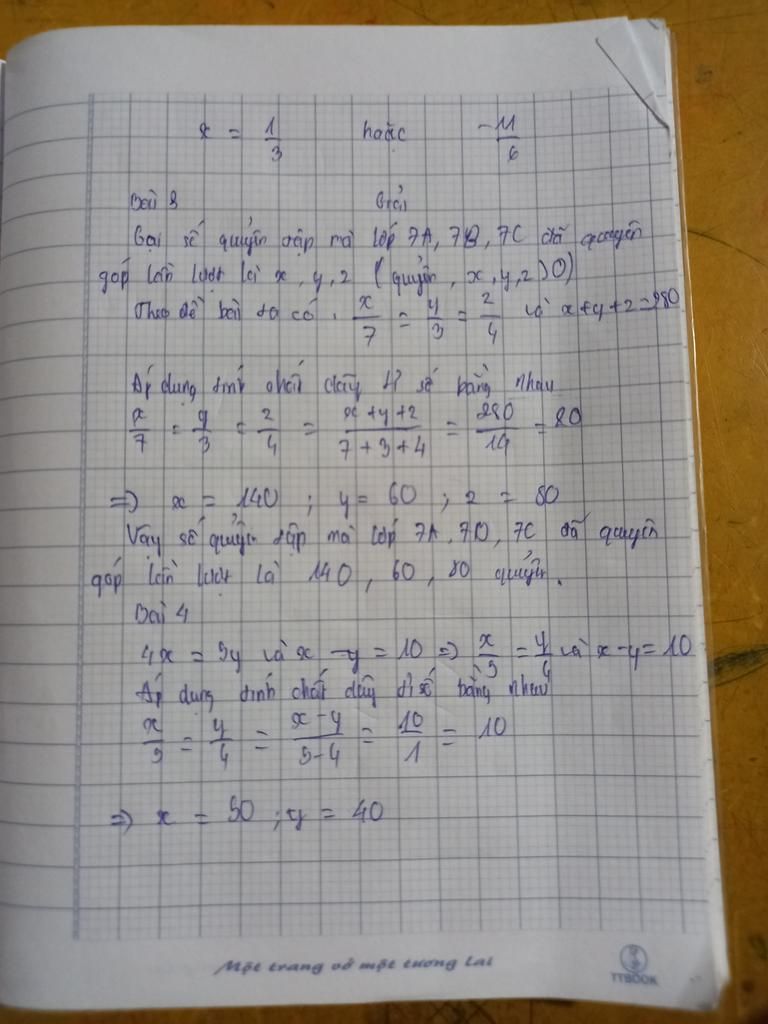 x = 1/3 hoặc -11/6
Bài 3 Giải
Gọi số quyển tập mà lớp 7A, 7B, 7C đã quyên
góp lần lượt là x, y, z (quyển, x, y, z > 0)
Theo đề bài ta có, x/7 = y/3 = z/4 và x + y + z = 280
Áp dụng tính chất dãy tỉ số bằng nhau
x/7 = y/3 = z/4 = (x + y + z)/(7 + 3 + 4) = 280/14 = 80
=> x = 140 ; y = 60 ; z = 80
Vậy số quyển tập mà lớp 7A, 7B, 7C đã quyên
góp lần lượt là 140, 60, 80 quyển.
Bài 4
4x = 5y và x - y = 10 => x/5 = y/4 và x - y = 10
Áp dụng tính chất dãy tỉ số bằng nhau
x/5 = y/4 = (x - y)/(5 - 4) = 10/1 = 10
=> x = 50 ; y = 40
Một trang vở một tương lai
TTBOOK